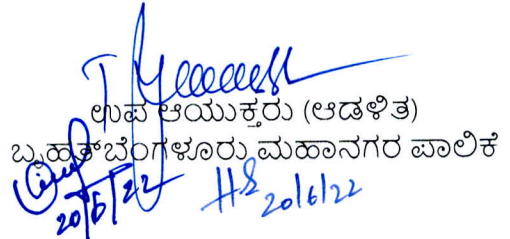 ಉಪ ಆಯುಕ್ತರು (ಆಡಳಿತ)
ಬೃಹತ್ ಬೆಂಗಳೂರು ಮಹಾನಗರ ಪಾಲಿಕೆ
20/6/22
20/6/22